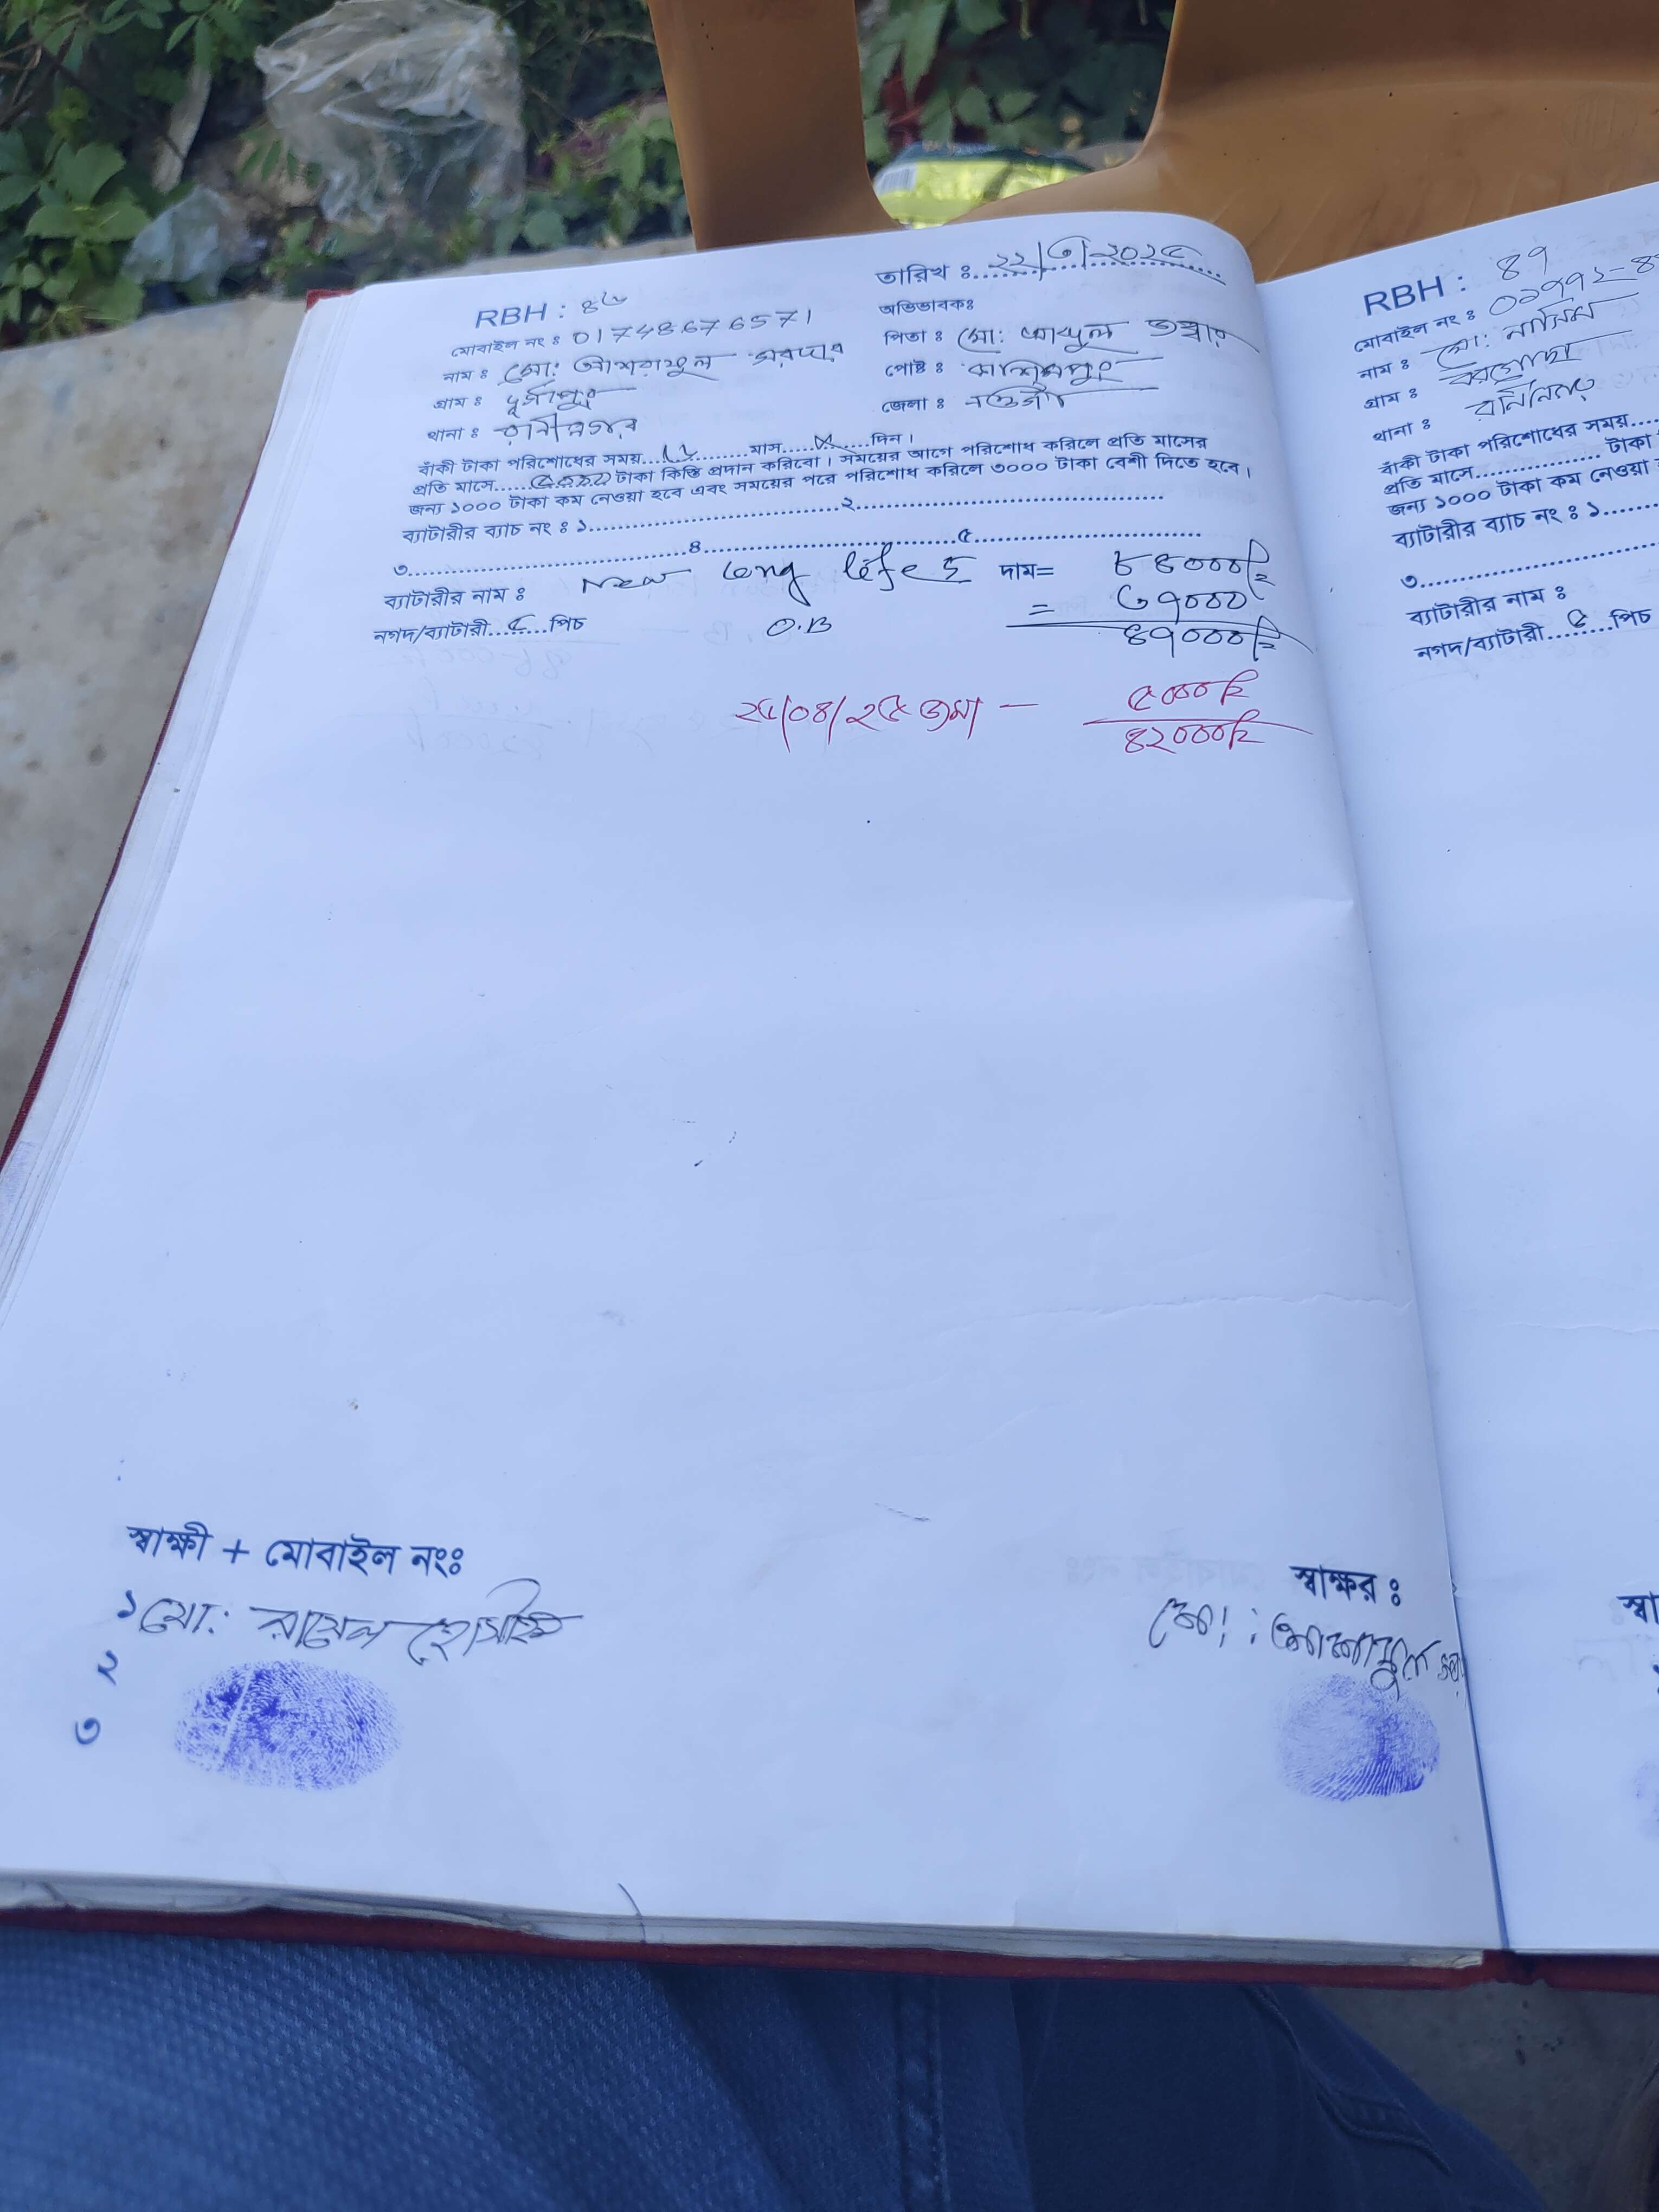 RBH : ৪৬
তারিখ ঃ ২২/৩/২০২৫
মোবাইল নং ঃ 01748676571
অভিভাবকঃ
নাম ঃ মো: আশরাফুল সরদার
পিতা ঃ মো: আব্দুল জব্বার
গ্রাম ঃ দূর্গাপুর
পোষ্ট ঃ কাশিমপুর
থানা ঃ রানীনগর
জেলা ঃ নওগাঁ
বাঁকী টাকা পরিশোধের সময়..............মাস..............দিন।
প্রতি মাসে.....৫০০০ টাকা কিস্তি প্রদান করিবো। সময়ের আগে পরিশোধ করিলে প্রতি মাসের
জন্য ১০০০ টাকা কম নেওয়া হবে এবং সময়ের পরে পরিশোধ করিলে ৩০০০ টাকা বেশী দিতে হবে।
ব্যাটারীর ব্যাচ নং ঃ ১..............................২..............................
৩..............................৪..............................৫..............................
ব্যাটারীর নাম ঃ New Long life দাম= ৮৪০০০/=
নগদ/ব্যাটারী...৫...পিচ O.B = ৩৭০০০
৪৭০০০/=
২৫/০৪/২৫ জমা — ৫০০০/=
৪২০০০/=
স্বাক্ষী + মোবাইল নংঃ
১ মো: রাসেল হোসাইন
২
৩
স্বাক্ষর ঃ
RBH : ৪৭
মোবাইল নং ঃ ০১৭৭২-৪
নাম ঃ মো: নাসিম
গ্রাম ঃ বরগাছা
থানা ঃ
বাঁকী টাকা পরিশোধের সময়....
প্রতি মাসে.................. টাকা
জন্য ১০০০ টাকা কম নেওয়া
ব্যাটারীর ব্যাচ নং ঃ ১......
৩..............................
ব্যাটারীর নাম ঃ
নগদ/ব্যাটারী...৫...পিচ